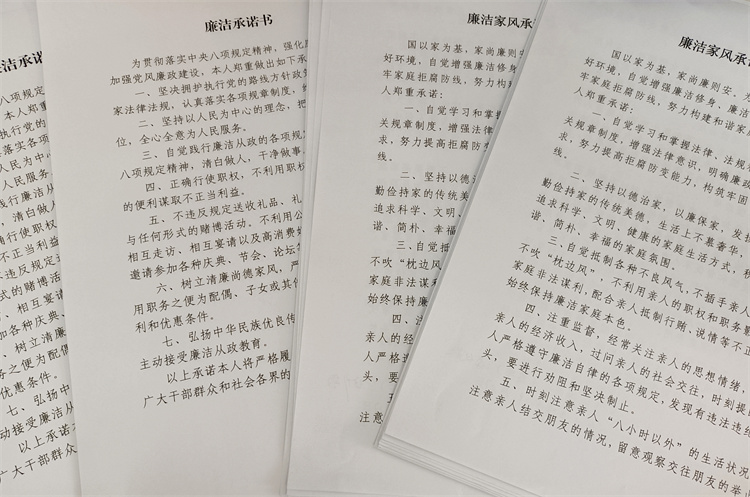 洁承诺书
八项规定
本人郑重
执行党的
落实各项
人民为中
民服务。
行廉洁从
清白做人
行使职权
不正当利
反规定送
式的赌博活
相互宴请
种庆典、
清廉尚德
之便为配
优惠条件。
七、弘扬
动接受廉洁从
以上承诺本
广大干部群众
廉洁承诺书
为贯彻落实中央八项规定精神，强化
加强党风廉政建设，本人郑重做出如下承
一、坚决拥护执行党的路线方针政策
家法律法规，认真落实各项规章制度，
二、坚持以人民为中心的理念，把
位，全心全意为人民服务。
三、自觉践行廉洁从政的各项规定
八项规定精神，清白做人，干净做事
四、正确行使职权，不利用职权
的便利谋取不正当利益。
五、不违反规定送收礼品、礼
与任何形式的赌博活动。不利用公
相互走访、相互宴请以及高消费娱
邀请参加各种庆典、节会、论坛
六、树立清廉尚德家风，严
用职务之便为配偶、子女或其
利和优惠条件。
七、弘扬中华民族优良传
主动接受廉洁从政教育。
以上承诺本人将严格履
广大干部群众和社会各界的
廉洁家风承
国以家为基，家尚廉则安
好环境，自觉增强廉洁修身
牢家庭拒腐防线，努力构
人郑重承诺：
一、自觉学习和掌握
关规章制度，增强法律
求，努力提高拒腐防
线。
二、坚持以德治
勤俭持家的传统美
追求科学、文明、
谐、简朴、幸福的
三、自觉抵制
不吹“枕边风”
家庭非法谋利
始终保持廉
四、注
亲人的经
人严格遵
头，要
五
注意亲
廉洁家风承诺
国以家为基，家尚廉则安。为
好环境，自觉增强廉洁修身、廉洁
牢家庭拒腐防线，努力构建和谐家
人郑重承诺：
一、自觉学习和掌握法律、法规
关规章制度，增强法律意识，明确廉政
求，努力提高拒腐防变能力，构筑牢固
线。
二、坚持以德治家，以廉保家，发扬
勤俭持家的传统美德，生活上不慕奢华，
追求科学、文明、健康的家庭生活方式，
谐、简朴、幸福的家庭氛围。
三、自觉抵制各种不良风气，不插手亲人
不吹“枕边风”，不利用亲人的职权和职务影
家庭非法谋利，配合亲人抵制行贿、说情等不正
始终保持廉洁家庭本色。
四、注重监督，经常关注亲人的思想情绪，
亲人的经济收入，过问亲人的社会交往，时刻提
人严格遵守廉洁自律的各项规定，发现有违法违纪
头，要进行劝阻和坚决制止。
五、时刻注意亲人“八小时以外”的生活状况
注意亲人结交朋友的情况，留意观察交往朋友的举